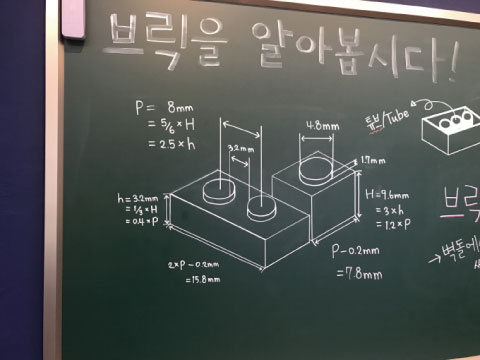 브릭을 알아봅시다!
P = 8mm
= 5/6 × H
= 2.5 × h
3.2mm
4.8mm
1.7mm
튜브/Tube
h = 3.2mm
= 1/3 × H
= 0.4 × P
H = 9.6mm
= 3 × h
= 1.2 × P
2 × P - 0.2mm
= 15.8mm
P - 0.2mm
= 7.8mm
브릭
→ 벽돌에